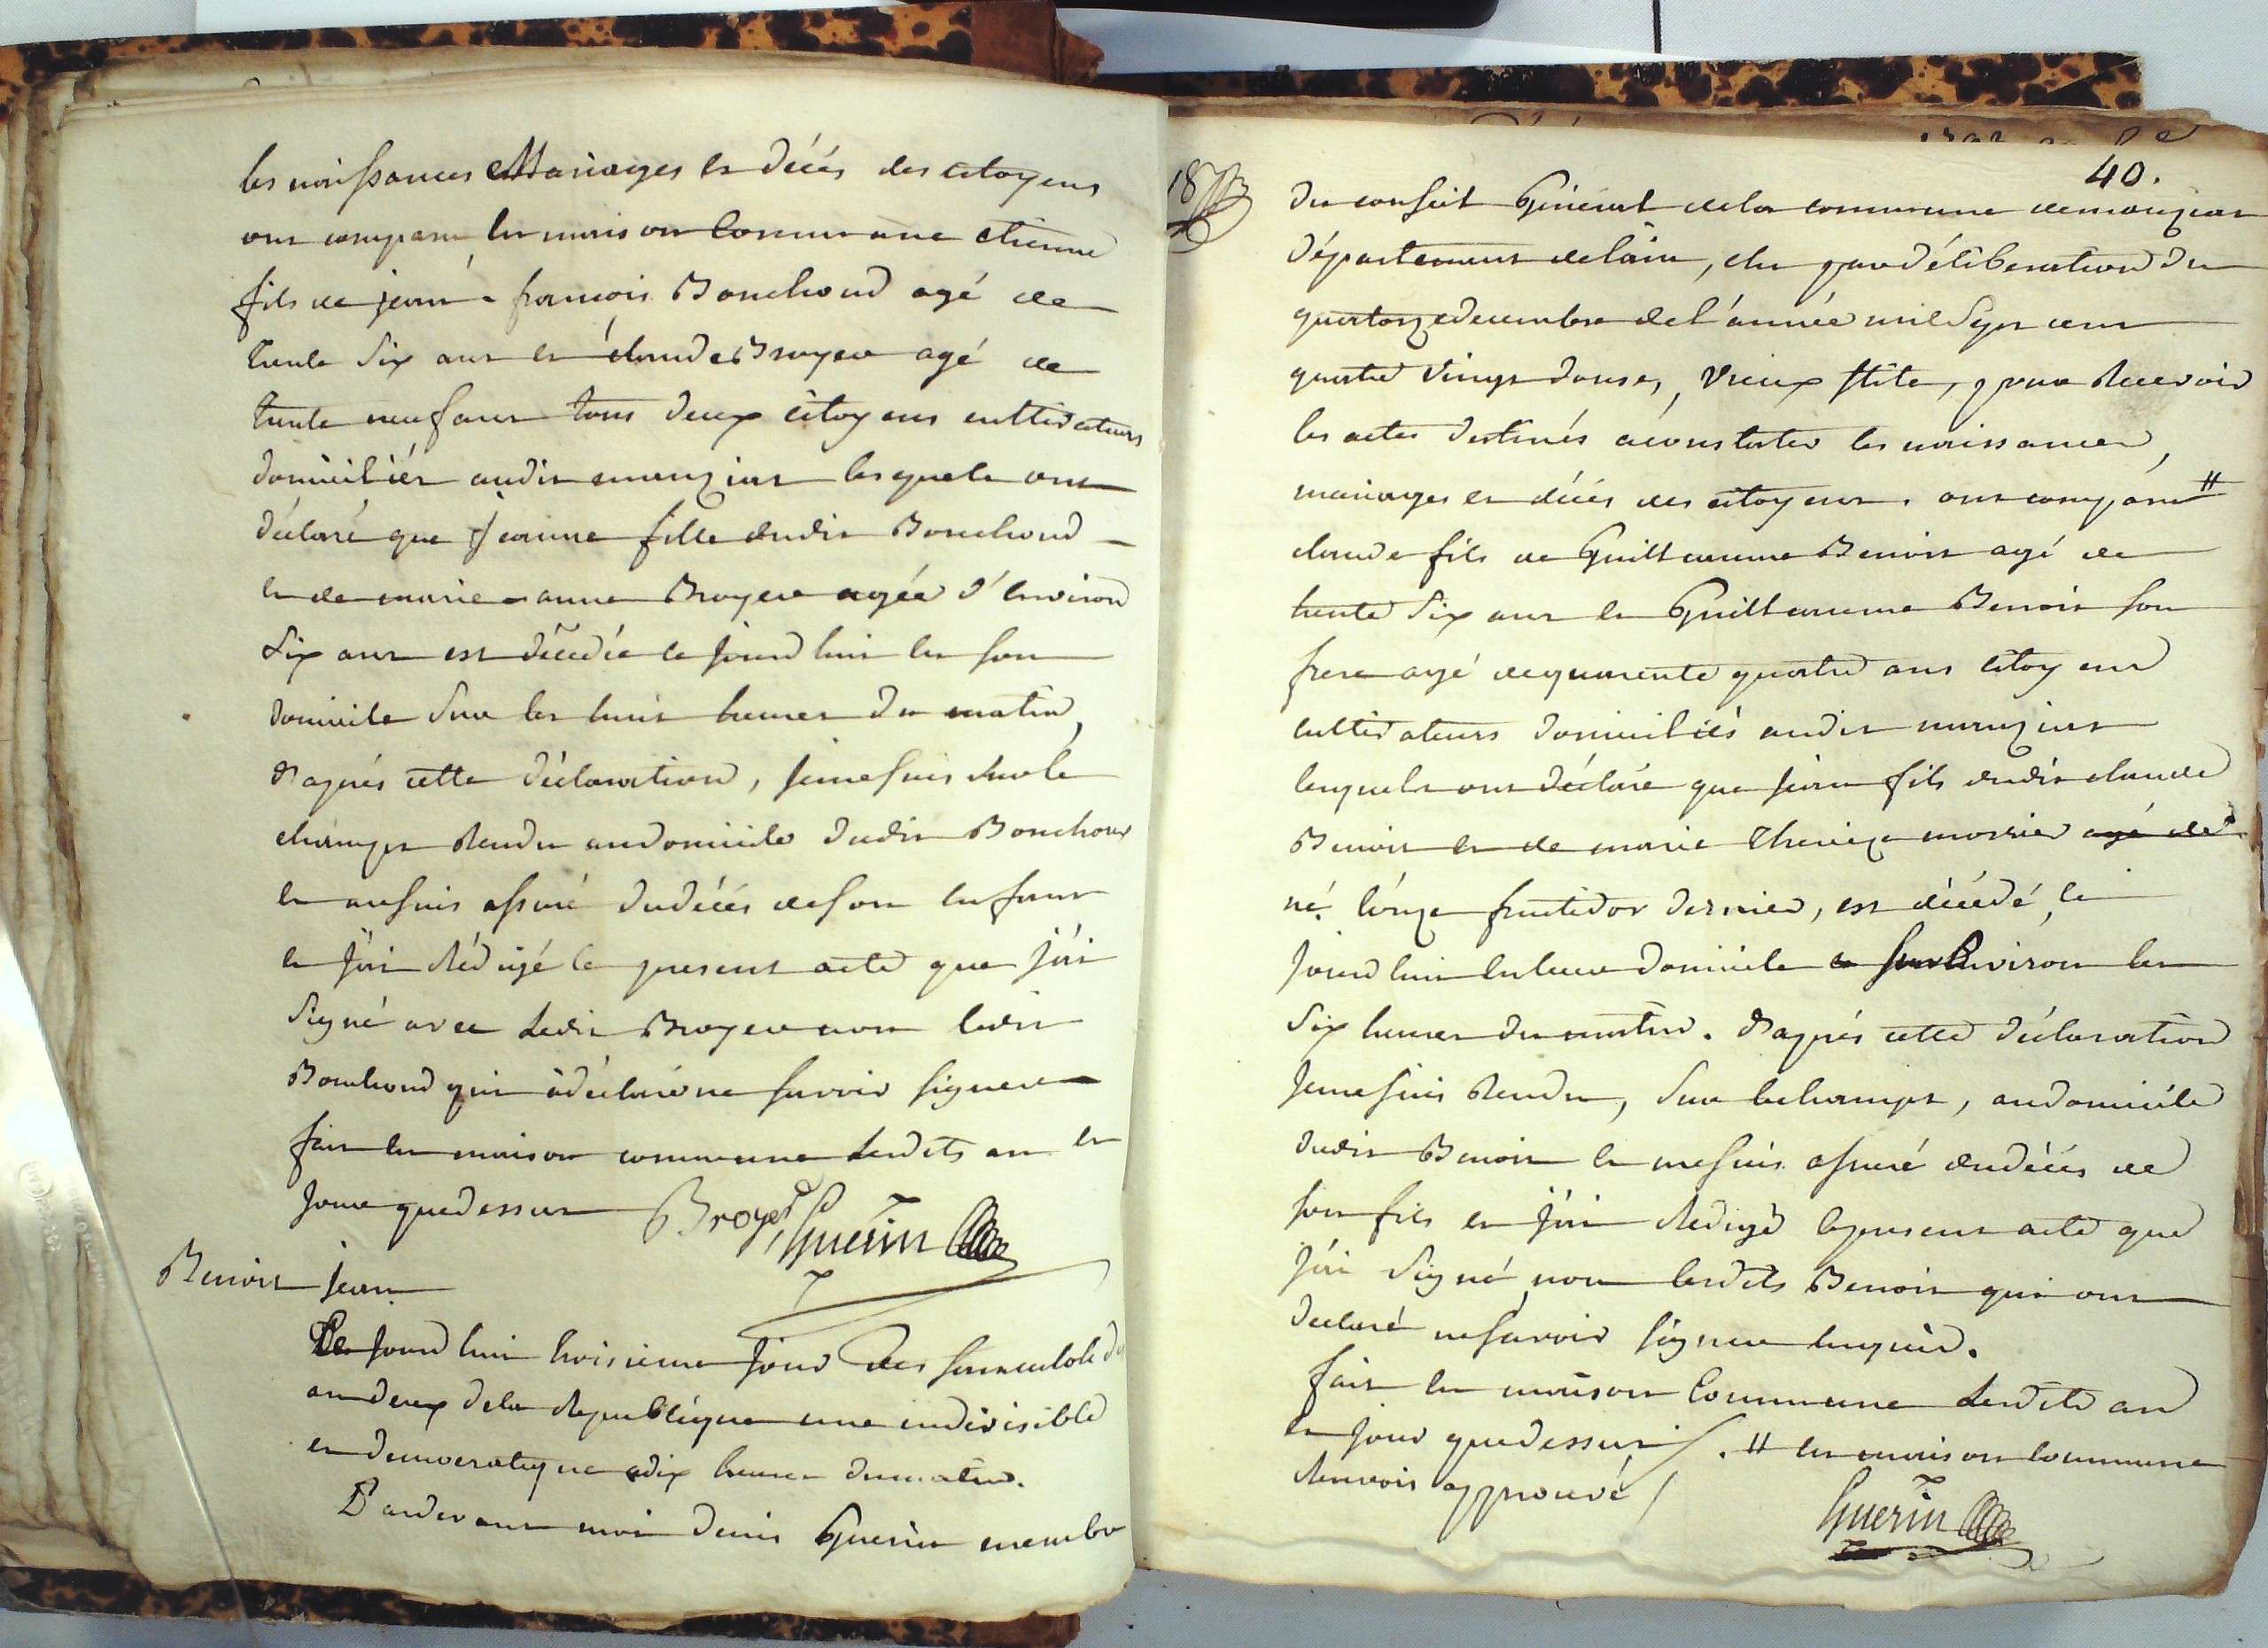 les naissances Mariages et décés des citoyens
ont comparu en maison Commune etienne
fils de jean-francois Bouchoud agé de
trente six ans et claude Broyer agé de
trente neuf ans tous deux citoyens cultivateurs
domiciliés audit manziat lesquels ont
déclaré que Jeanne fille dudit Bouchoud
et de marie-anne Broyer agée d'environ
six ans est décédée ce jourd'hui en son
domicile sur les huit heures du matin,
d'après cette déclaration, je me suis sur le
champs Rendu au domicile dudit Bouchoud
et me suis assuré du décés de son enfant
et j'ai Rédigé le present acte que j'ai
signé avec Ledit Broyer non ledit
Bouchoud qui a déclaré ne savoir signer
fait en maison commune Lesdits an et
jour que dessus Broyer Guerin
Benoit Jean
Ce jourd'hui troisieme jour des sansculotides
an deux de la Republique une indivisible
et democratique a dix heures du matin.
Pardevant moi denis Guerin membre
40.
du conseil Général de la commune de manziat
département de l'ain, elu par déliberation du
quatorze decembre de l'année mil sept cent
quatre vingt douze, vieux stile, pour Recevoir
les actes destinés a constater les naissances,
mariages et décés des citoyens. ont comparu #
claude fils de Guillaume Benoit agé de
trente six ans et Guillaume Benoit son
frere agé de quarente quatre ans citoyens
cultivateurs domiciliés audit manziat
lesquels ont déclaré que jean fils dudit claude
Benoit et de marie Thereze agé de
né fructidor dernier, est décédé ce
jourd'hui en leur domicile Environ les
six heures du matin. d'après cette déclaration
je me suis Rendu, sur le champs, au domicile
dudit Benoit et me suis assuré du décés de
son fils et j'ai Redigé le present acte que
j'ai signé, non lesdits Benoit qui ont
declaré ne savoir signer enquis.
fait en maison Commune Lesdits an
et jour que dessus /. # en maison commune
Renvoi approuvé /
Guerin